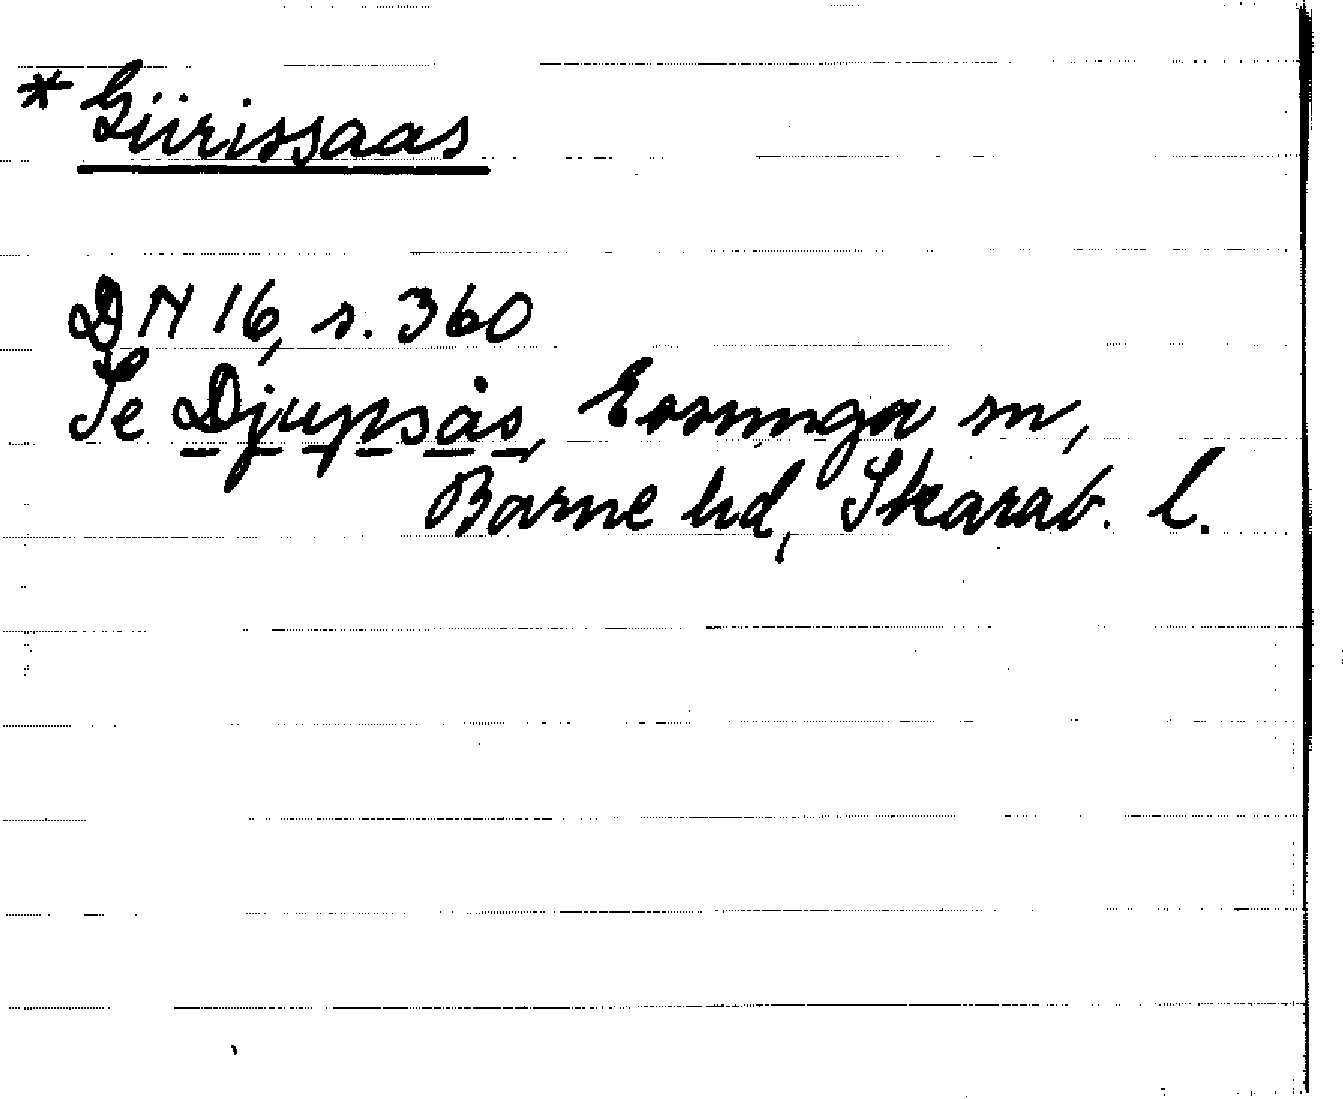 * Giirissaas
DN 16, s. 360
Se Djupsås, Essunga sn,
Barne hd, Skarab. l.